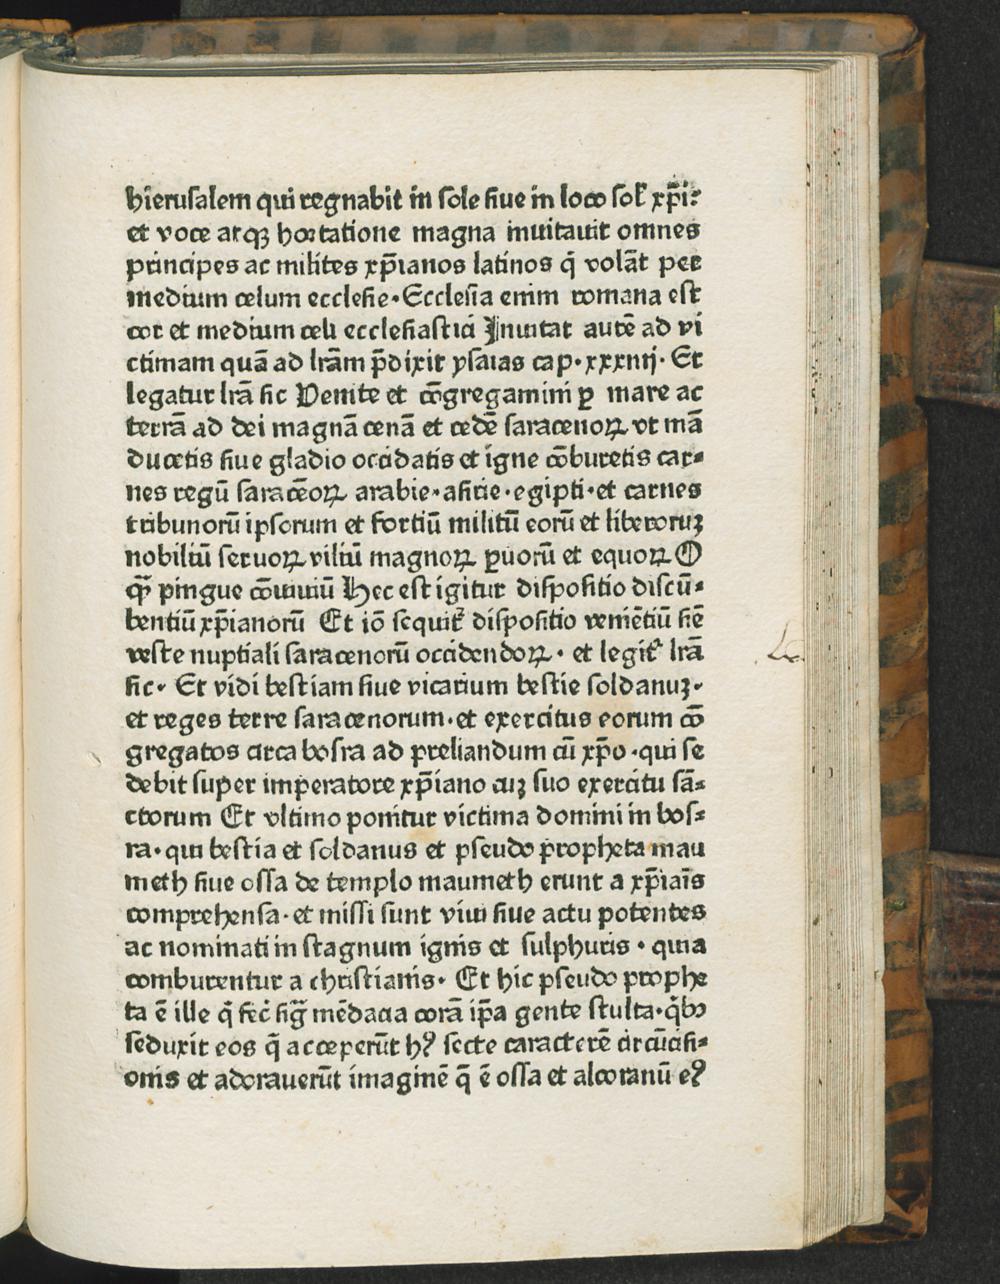 hierusalem qui regnabit in sole siue in loco sol̕ xp̄i:
et voce atqꝫ hoꝛtatione magna inuitauit omnes
principes ac milites xp̄ianos latinos q̄ volāt per
medium celum ecclesie·Ecclesia enim romana est
cor et medium celi ecclesiastici Inuitat autē ad vi
ctimam quā ad lr̄am p̄dixit ysaias cap·xxxiiij· Et
legatur lr̄a sic Venite et cōgregamini ꝑ mare ac
terrā ad dei magnā cenā et cedē saracenoꝝ vt mā
ducetis siue gladio occidatis et igne cōburetis car⸗
nes regū saracēoꝝ arabie·asirie·egipti·et carnes
tribunorū ipsorum et fortiū militū eorū et liberoruꝫ
nobiliū seruoꝝ viliū magnoꝝ ꝑuorū et equoꝝ O
q̄ꝫ pingue cōuiuiū Hec est igitur dispositio discū⸗
bentiū xp̄ianorū Et iō sequit᷑ dispositio veniētiū siē
veste nuptiali saracenorū occidendoꝝ · et legit᷑ lr̄a
sic· Et vidi bestiam siue vicarium bestie soldanuꝫ·
et reges terre saracenorum·et exercitus eorum cō
gregatos circa bosra ad preliandum cū xp̄o ·qui se
debit super imperatore xp̄iano cuꝫ suo exercitu sā⸗
ctorum Et vltimo ponitur victima domini in bos⸗
ra·qui bestia et soldanus et pseudo propheta mau
meth siue ossa de templo maumeth erunt a xp̄iaīs
comprehensa·et missi sunt viui siue actu potentes
ac nominati in stagnum ignis et sulphuris · quia
comburentur a christianis· Et hic pseudo prophe
ta ē ille q̄ fec̄ siḡ mēdacia corā ip̄a gente stulta·q̄bꝰ
seduxit eos q̄ acceperūt hꝰ secte caracterē circūcisi⸗
onis et adorauerūt imaginē q̄ ē ossa et alcoranū eꝰ